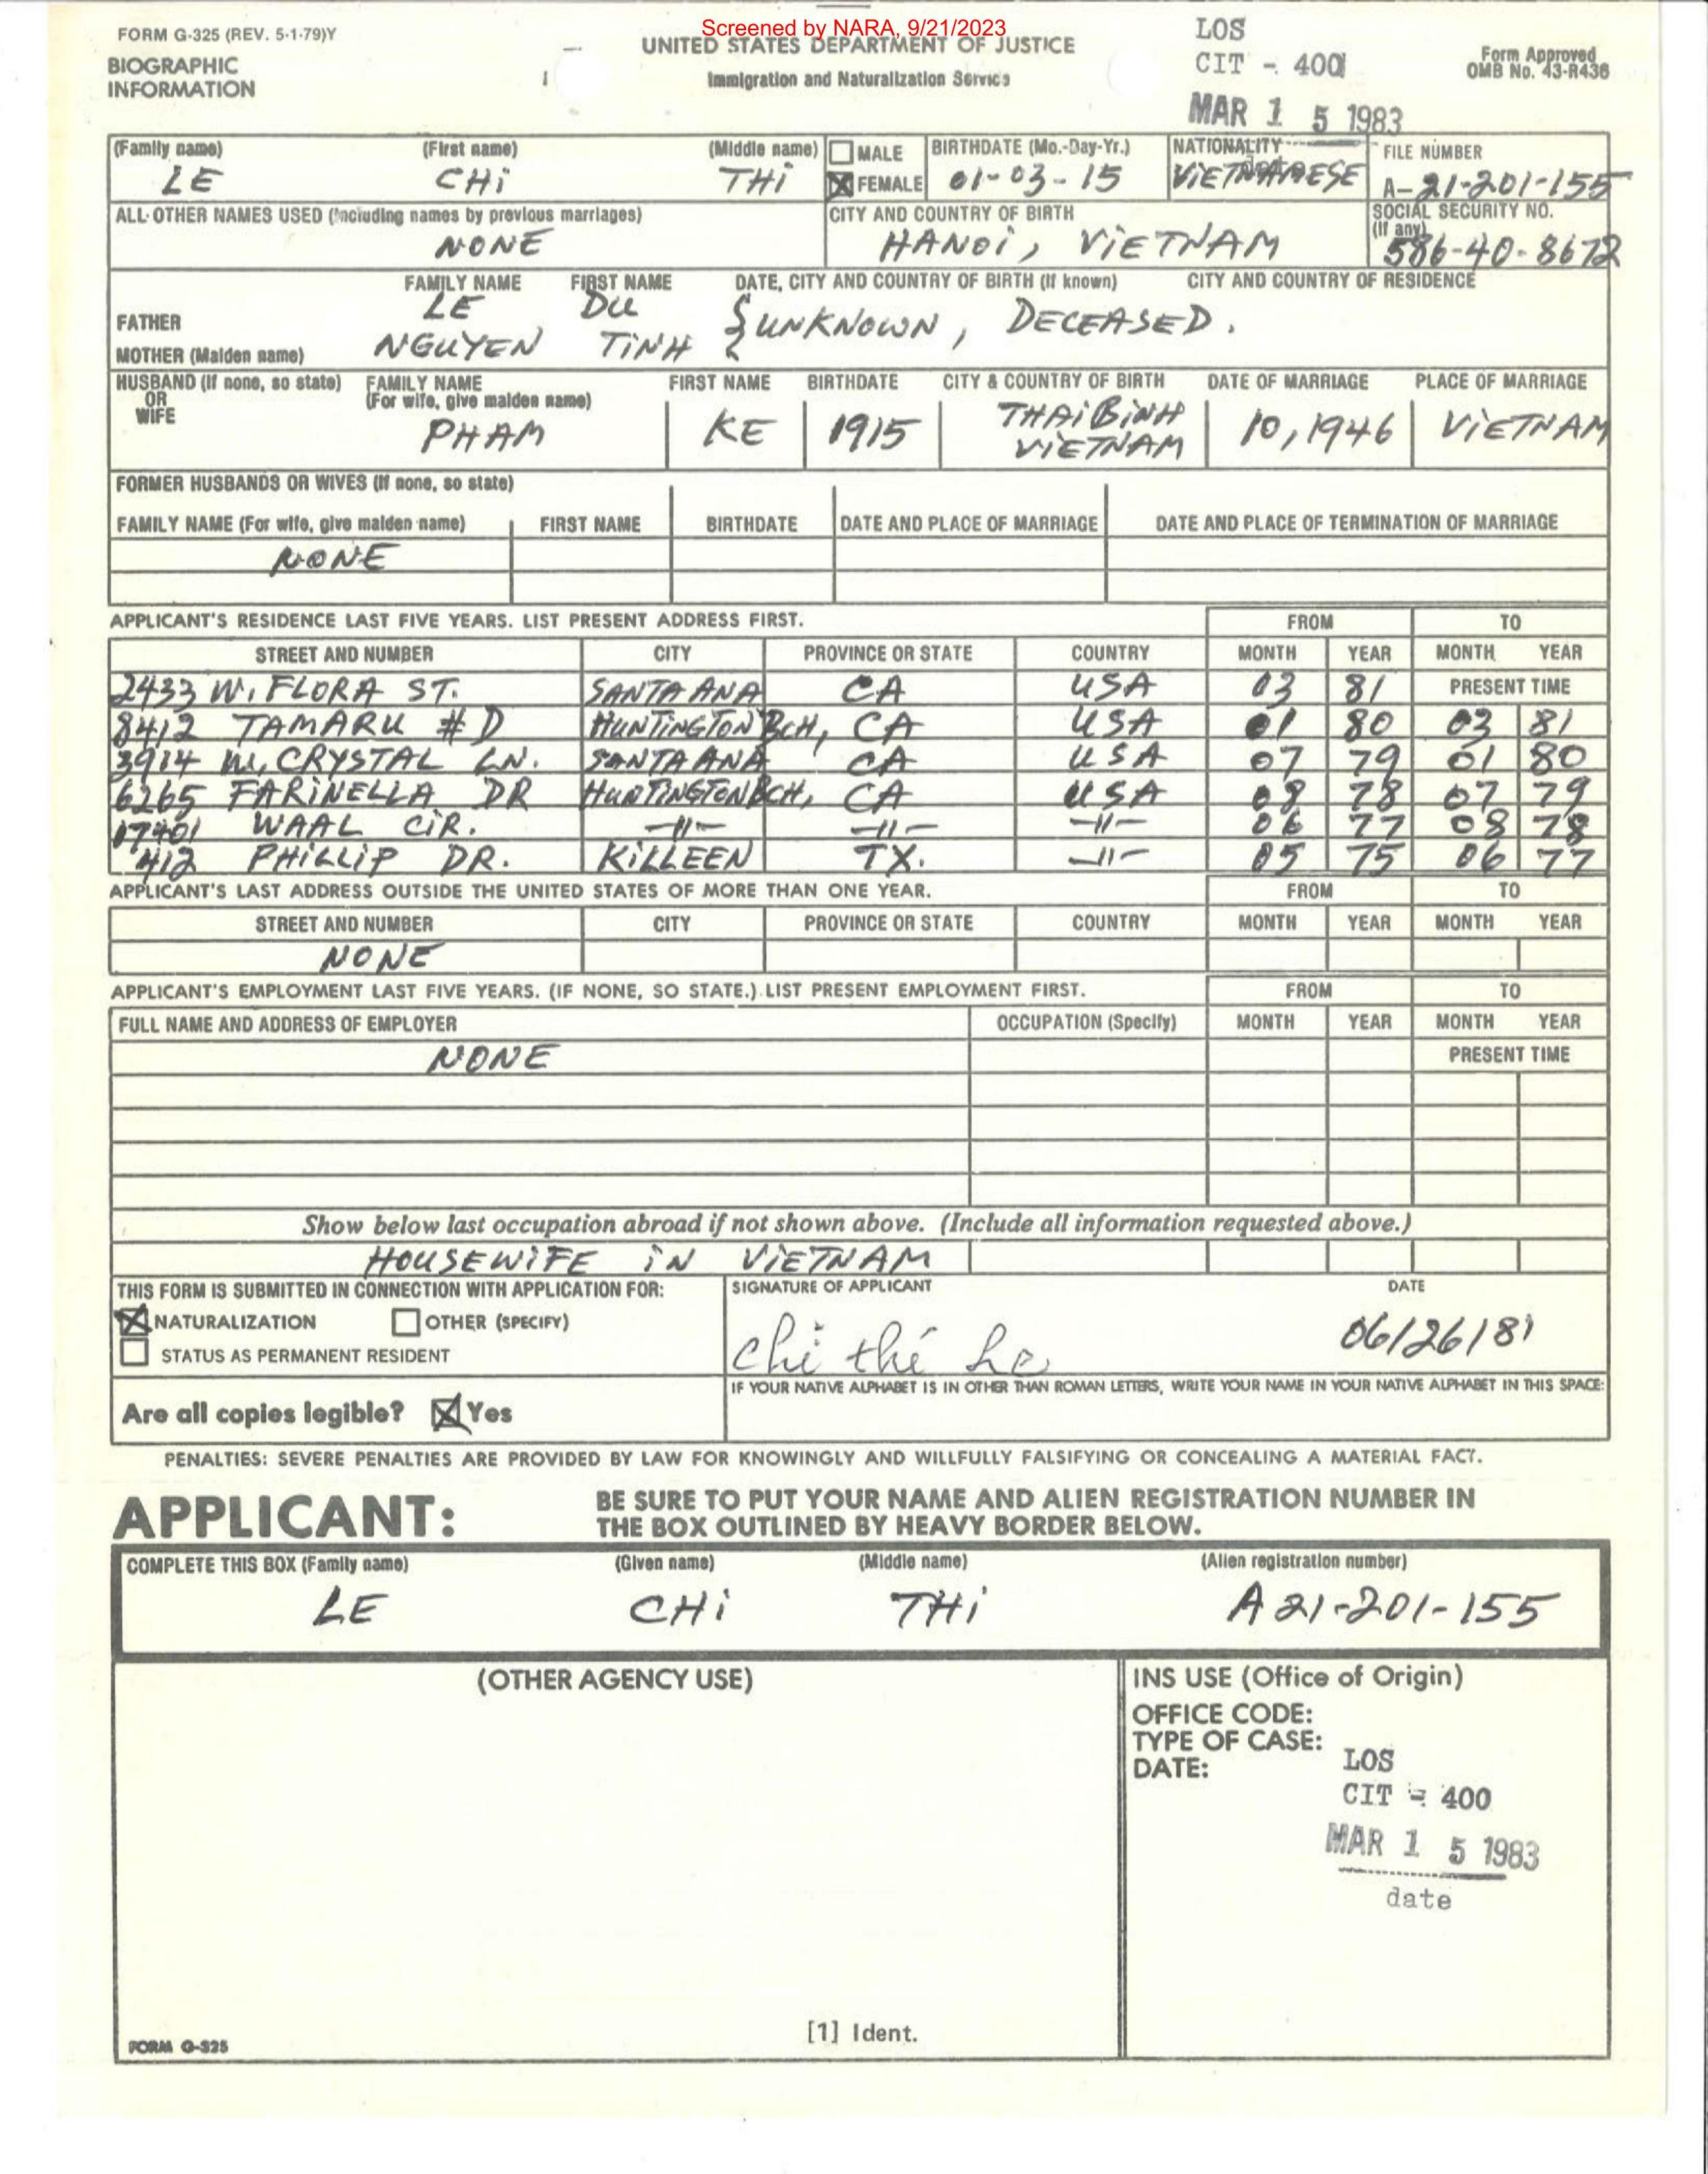 Screened by NARA, 9/21/2023
FORM G-325 (REV. 5-1-79)Y
UNITED STATES DEPARTMENT OF JUSTICE
LOS
BIOGRAPHIC
INFORMATION
Immigration and Naturalization Service
CIT - 400
Form Approved
OMB No. 43-R436
MAR 15 1983
(Family name) (First name) (Middle name) MALE BIRTHDATE (Mo.-Day-Yr.) NATIONALITY FILE NUMBER
LE CHi THi X FEMALE 01-03-15 ViETNAMESE A-21-201-155
ALL OTHER NAMES USED (Including names by previous marriages) CITY AND COUNTRY OF BIRTH SOCIAL SECURITY NO. (If any)
NONE HANOi, ViETNAM 586-40-8672
FAMILY NAME FIRST NAME DATE, CITY AND COUNTRY OF BIRTH (If known) CITY AND COUNTRY OF RESIDENCE
FATHER LE DU { UNKNOWN, DECEASED.
MOTHER (Maiden name) NGUYEN TiNH
HUSBAND (If none, so state) OR WIFE FAMILY NAME (For wife, give maiden name) FIRST NAME BIRTHDATE CITY & COUNTRY OF BIRTH DATE OF MARRIAGE PLACE OF MARRIAGE
PHAM KE 1915 THAiBiNH ViETNAM 10,1946 ViETNAM
FORMER HUSBANDS OR WIVES (If none, so state)
FAMILY NAME (For wife, give maiden name) FIRST NAME BIRTHDATE DATE AND PLACE OF MARRIAGE DATE AND PLACE OF TERMINATION OF MARRIAGE
NONE
APPLICANT'S RESIDENCE LAST FIVE YEARS. LIST PRESENT ADDRESS FIRST. FROM TO
STREET AND NUMBER CITY PROVINCE OR STATE COUNTRY MONTH YEAR MONTH YEAR
2433 W. FLORA ST. SANTA ANA CA USA 03 81 PRESENT TIME
8412 TAMARU #D HUNTiNGTON BCH, CA USA 01 80 03 81
3914 W. CRYSTAL LN. SANTA ANA CA USA 07 79 01 80
6265 FARiNELLA DR HUNTINGTON BCH, CA USA 08 78 07 79
17401 WAAL CiR. -11- -11- -11- 06 77 08 78
412 PHiLLiP DR. KiLLEEN TX. -11- 05 75 06 77
APPLICANT'S LAST ADDRESS OUTSIDE THE UNITED STATES OF MORE THAN ONE YEAR. FROM TO
STREET AND NUMBER CITY PROVINCE OR STATE COUNTRY MONTH YEAR MONTH YEAR
NONE
APPLICANT'S EMPLOYMENT LAST FIVE YEARS. (IF NONE, SO STATE.) LIST PRESENT EMPLOYMENT FIRST. FROM TO
FULL NAME AND ADDRESS OF EMPLOYER OCCUPATION (Specify) MONTH YEAR MONTH YEAR
NONE PRESENT TIME
Show below last occupation abroad if not shown above. (Include all information requested above.)
HOUSEWiFE iN ViETNAM
THIS FORM IS SUBMITTED IN CONNECTION WITH APPLICATION FOR: SIGNATURE OF APPLICANT DATE
X NATURALIZATION OTHER (SPECIFY)
STATUS AS PERMANENT RESIDENT
chi thí Le 06/26/81
IF YOUR NATIVE ALPHABET IS IN OTHER THAN ROMAN LETTERS, WRITE YOUR NAME IN YOUR NATIVE ALPHABET IN THIS SPACE:
Are all copies legible? X Yes
PENALTIES: SEVERE PENALTIES ARE PROVIDED BY LAW FOR KNOWINGLY AND WILLFULLY FALSIFYING OR CONCEALING A MATERIAL FACT.
APPLICANT: BE SURE TO PUT YOUR NAME AND ALIEN REGISTRATION NUMBER IN
THE BOX OUTLINED BY HEAVY BORDER BELOW.
COMPLETE THIS BOX (Family name) (Given name) (Middle name) (Alien registration number)
LE CHi THi A 21-201-155
(OTHER AGENCY USE)
INS USE (Office of Origin)
OFFICE CODE:
TYPE OF CASE:
DATE:
LOS
CIT - 400
MAR 15 1983
date
[1] Ident.
FORM G-325